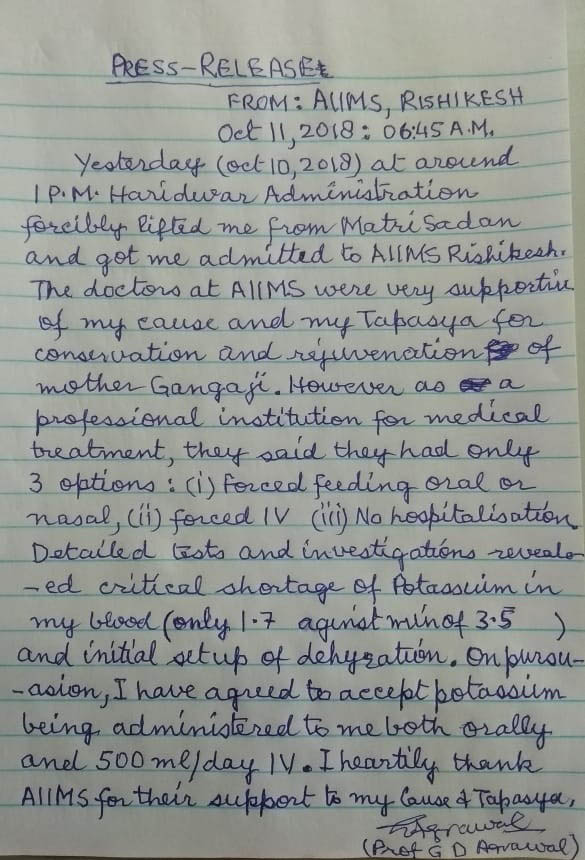 PRESS-RELEASE
FROM: AIIMS, RISHIKESH
Oct 11, 2018: 06:45 A.M.
Yesterday (oct 10, 2018) at around
1 P.M. Haridwar Administration
forcibly lifted me from Matri Sadan
and got me admitted to AIIMS Rishikesh.
The doctors at AIIMS were very supportive
of my cause and my Tapasya for
conservation and rejuvenation of
mother Gangaji. However as a
professional institution for medical
treatment, they said they had only
3 options: (i) Forced feeding oral or
nasal, (ii) forced IV (iii) No hospitalisation.
Detailed tests and investigations reveale-
-ed critical shortage of Potassium in
my blood (only 1.7 aginst min of 3.5 )
and initial setup of dehyration. On pursu-
-asion, I have agreed to accept potassium
being administered to me both orally
and 500 ml/day IV. I heartily thank
AIIMS for their support to my Cause & Tapasya.
Agrawal
(Prof G D Agrawal)